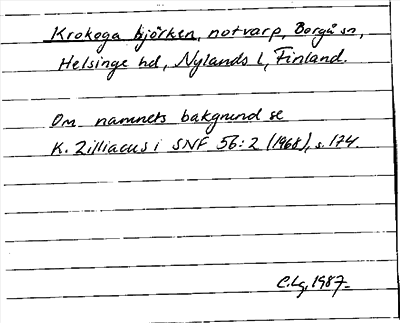 Krokoga björken, notvarp, Borgå sn,
Helsinge hd, Nylands l, Finland.
Om namnets bakgrund se
K. Zilliacus i SNF 56:2 (1968), s. 174.
C.Lg. 1987.